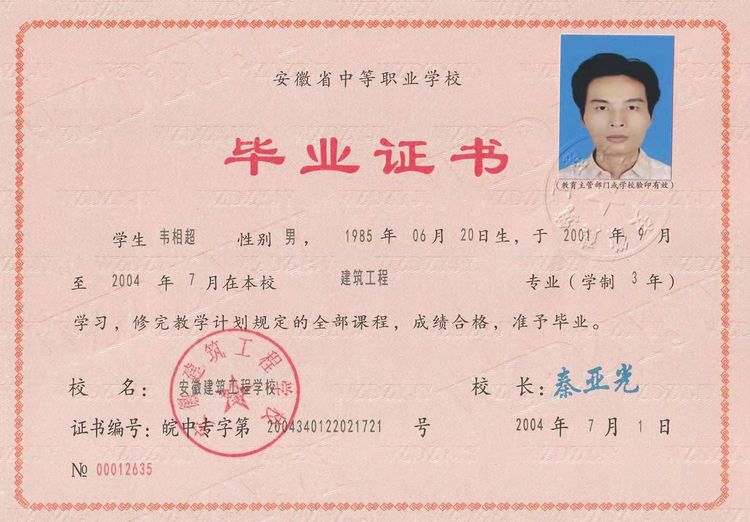 安徽省中等职业学校
毕业证书
(教育主管部门或学校验印有效)
学生 韦相超 性别 男 , 1985 年 06 月 20 日生, 于 2001 年 9 月
至 2004 年 7 月在本校 建筑工程 专业 (学制 3 年)
学习, 修完教学计划规定的全部课程, 成绩合格, 准予毕业。
校 名: 安徽建筑工程学校 校 长: 秦亚光
证书编号: 皖中专字第 2004340122021721 号 2004 年 7 月 1 日
№ 00012635
安徽建筑工程学校